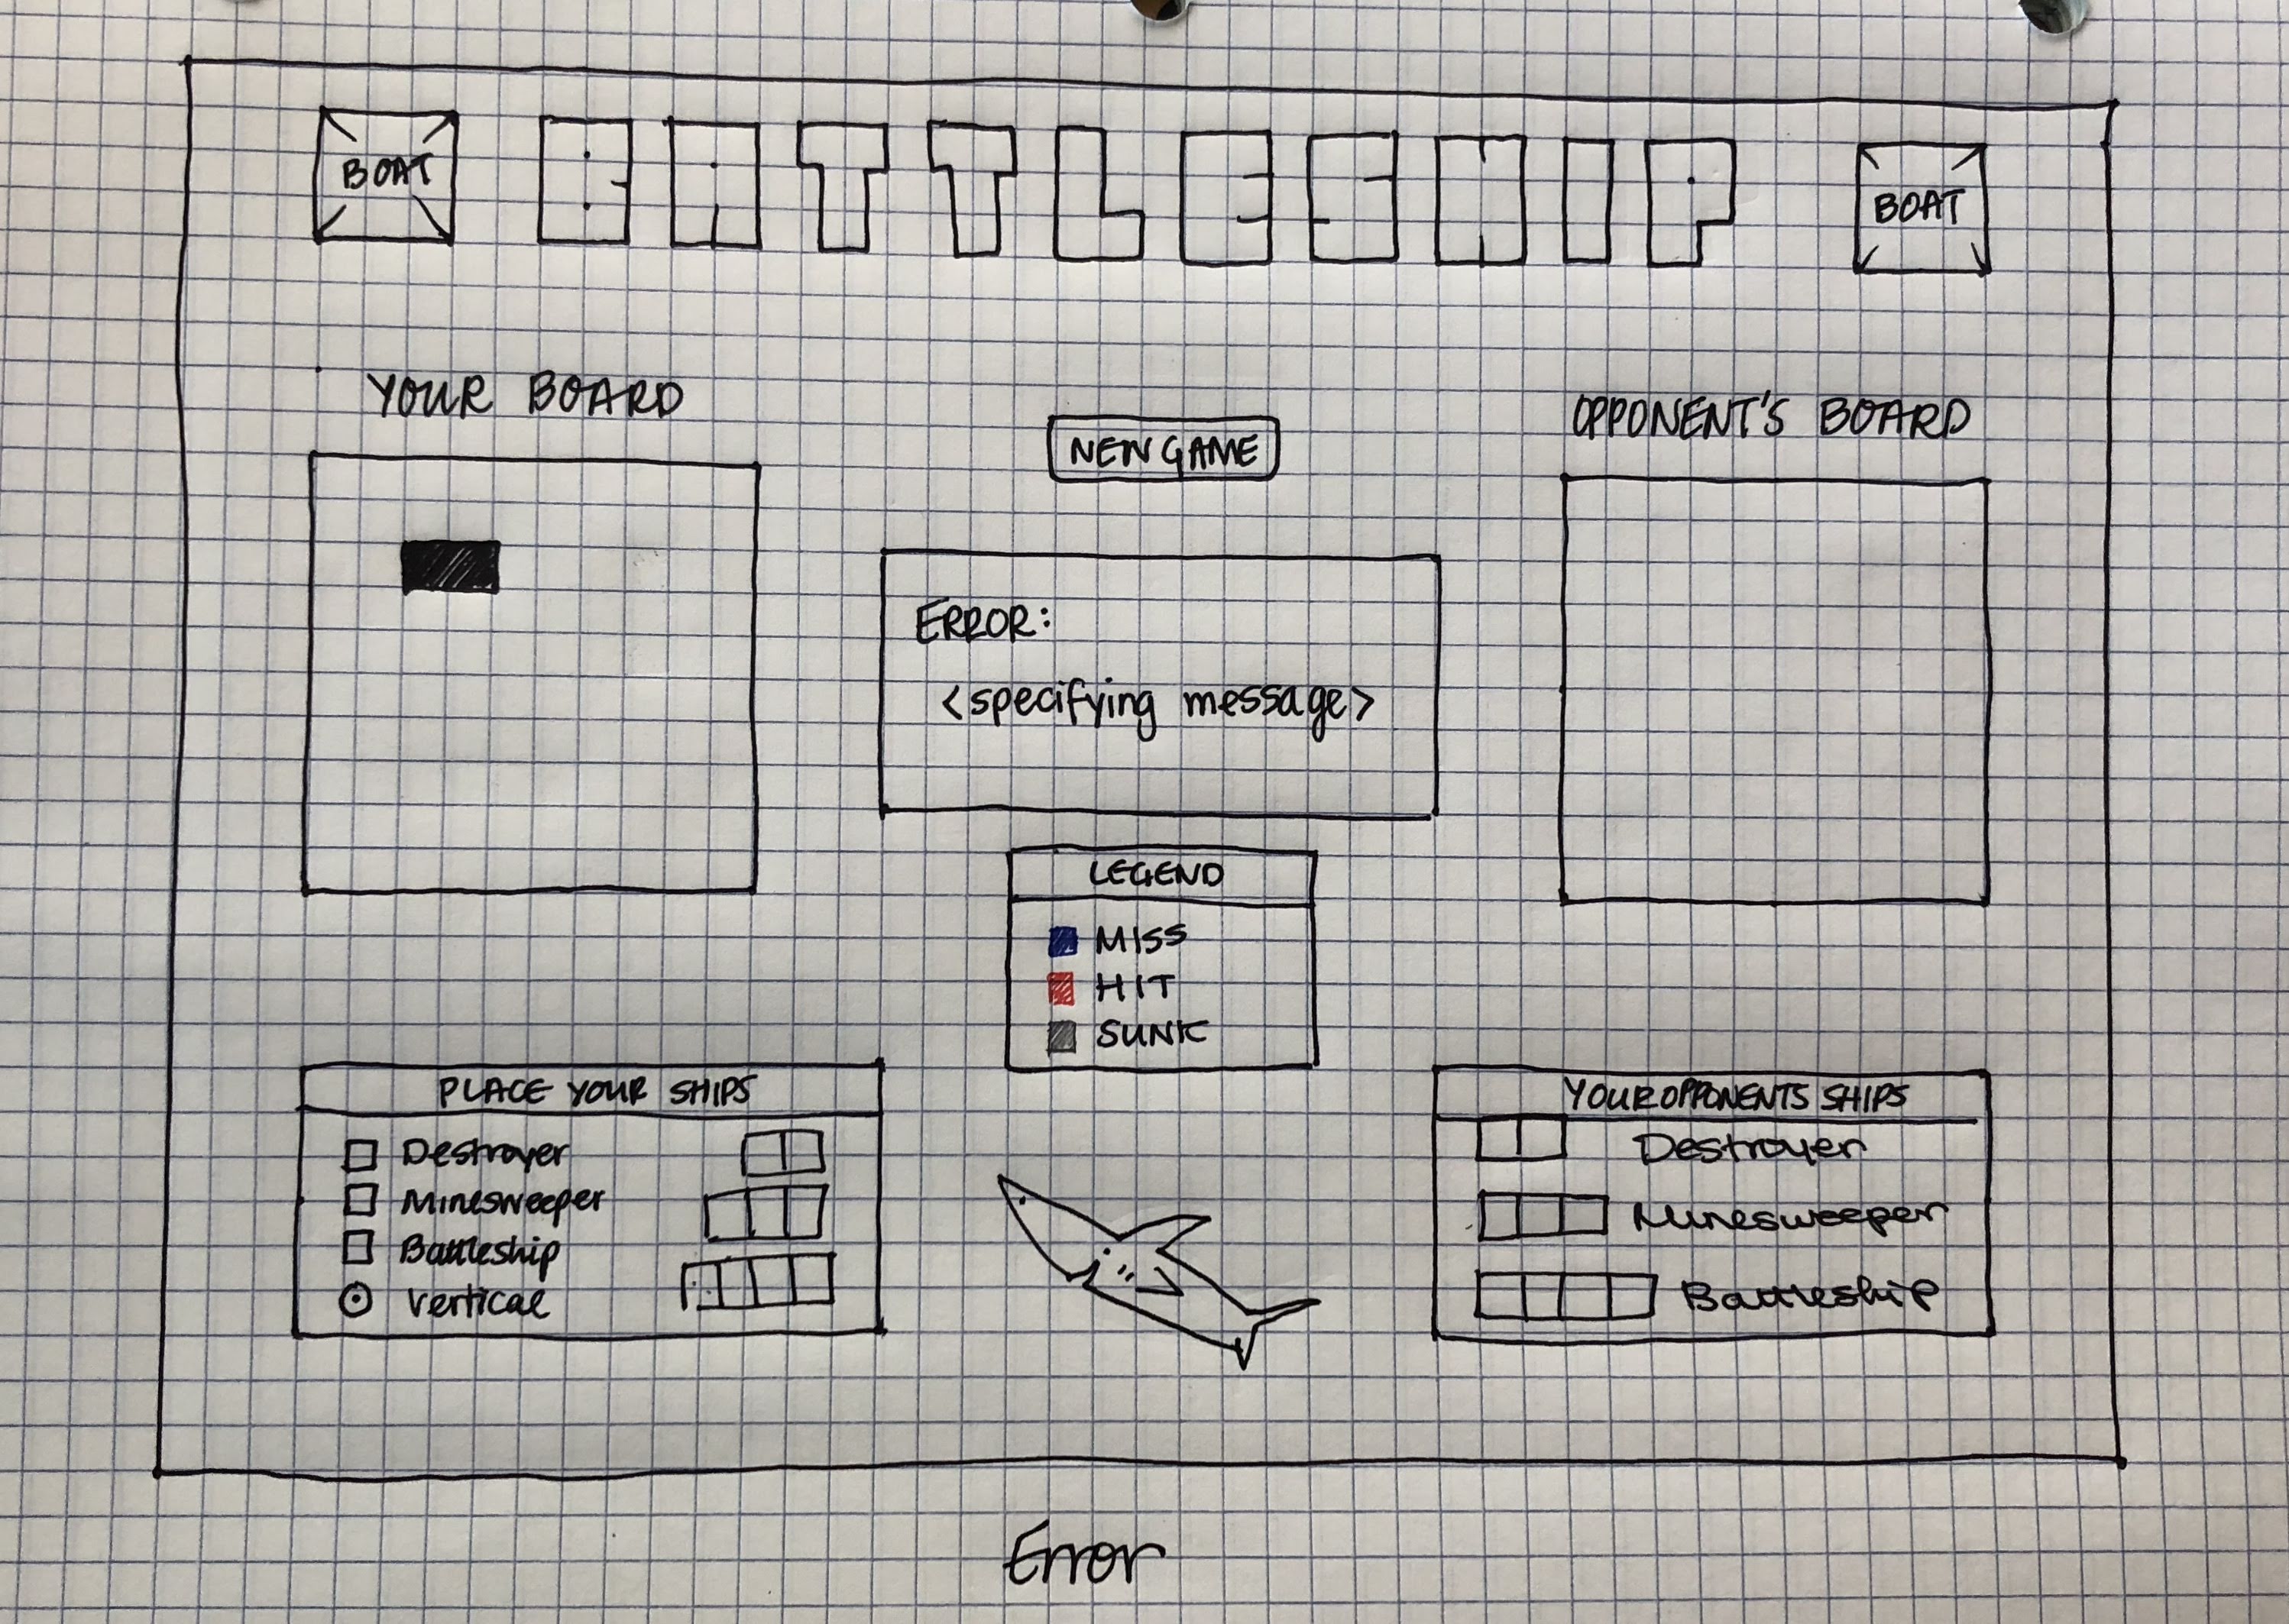 BOAT BATTLESHIP BOAT
YOUR BOARD
NEW GAME
OPPONENT'S BOARD
ERROR:
<specifying message>
LEGEND
MISS
HIT
SUNK
PLACE YOUR SHIPS
Destroyer
Minesweeper
Battleship
Vertical
YOUR OPPONENTS SHIPS
Destroyer
Minesweeper
Battleship
Error